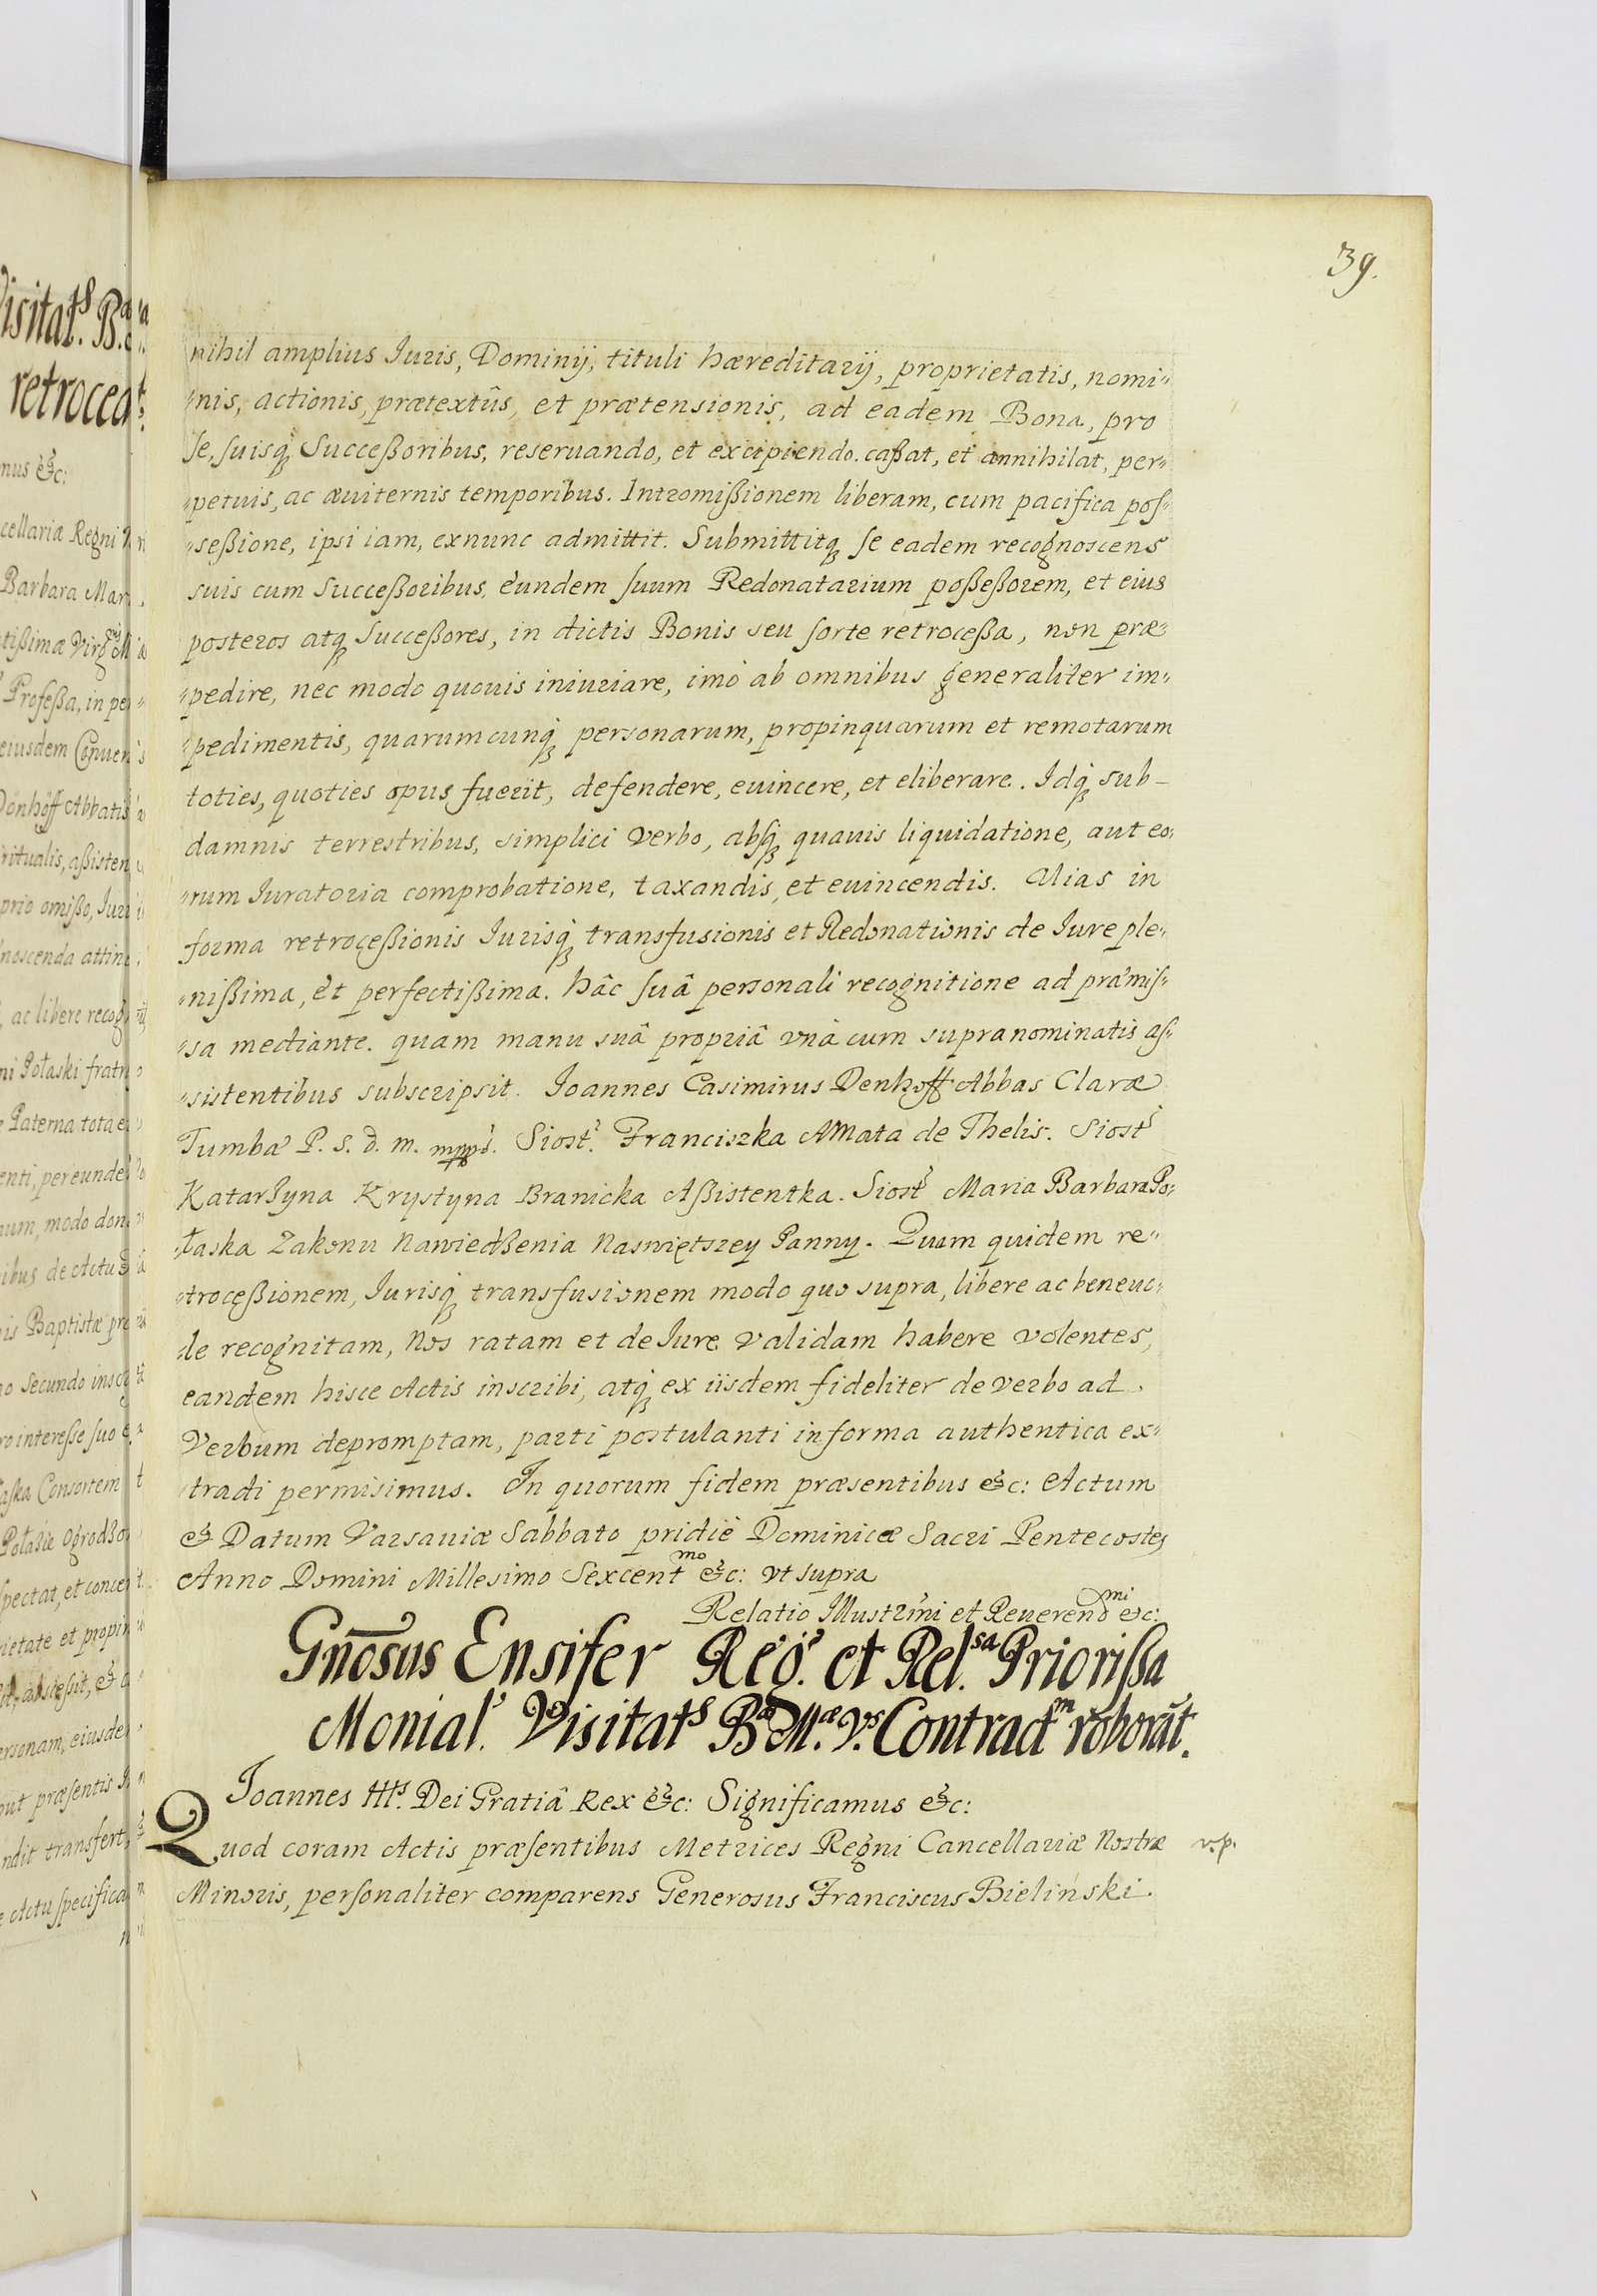 39.
nihil amplius Iuris, Dominij, tituli hæreditarij, proprietatis, nomi-
nis, actionis, prætextûs, et prætensionis, ad eadem Bona, pro
se, suisq; Succeßoribus, reseruando, et excipiendo. caßat, et annihilat, per-
petuis, ac æuiternis temporibus. Intromißionem liberam, cum pacifica pos-
seßione, ipsi iam, exnunc admittit. Submittitq; se eadem recognoscens
suis cum Succeßoribus, eundem suum Redonatarium poßeßorem, et eius
posteros atq; Succeßores, in dictis Bonis seu sorte retroceßa, non præ-
pedire, nec modo quouis iniuriare, imò ab omnibus generaliter im-
pedimentis, quarumcunq; personarum, propinquarum et remotarum
toties, quoties opus fuerit, defendere, euincere, et eliberare. Idq; sub-
damnis terrestribus, simplici verbo, absq; quauis liquidatione, aut eo-
rum Iuratoria comprobatione, taxandis, et euincendis. Alias in
forma retroceßionis Iurisq; transfusionis et Redonationis de Iure ple-
nißima, et perfectißima. hâc suâ personali recognitione ad præmis-
sa mediante. quam manu suâ propriâ vnà cum supranominatis as-
sistentibus subscripsit. Ioannes Casimirus Denhoff Abbas Claræ
Tumbæ P. S. D. M. mpp. Siostr. Franciszka AMata de Thelis. Siostr
Katarzyna Krystyna Branicka Aßistentka. Siostr Maria Barbara Po-
łaska Zakonu Nawiedzenia Naswiętszey Panny. Quam quidem re-
troceßionem, Iurisq; transfusionem modo quo supra, libere ac beneuo-
le recognitam, Nos ratam et de Iure validam habere volentes,
eandem hisce Actis inscribi, atq; ex iisdem fideliter de verbo ad
Verbum depromptam, parti postulanti in forma authentica ex-
tradi permisimus. In quorum fidem præsentibus &c: Actum
& Datum Varsauiæ Sabbato pridiè Dominicæ Sacri Pentecostes
Anno Domini Millesimo Sexcentmo &c: vt supra
Relatio Illustrmi et Reuerendmi &c:
Gnosus Ensifer Reg. et Rel.sa Priorißa
Monial. Visitats Bæ Mæ Vs Contractm roborāt.
Ioannes IIIs. Dei Gratiâ Rex &c: Significamus &c:
Quod coram Actis præsentibus Metrices Regni Cancellariæ Nostræ v.p.
Minoris, personaliter comparens Generosus Franciscus Bieliński